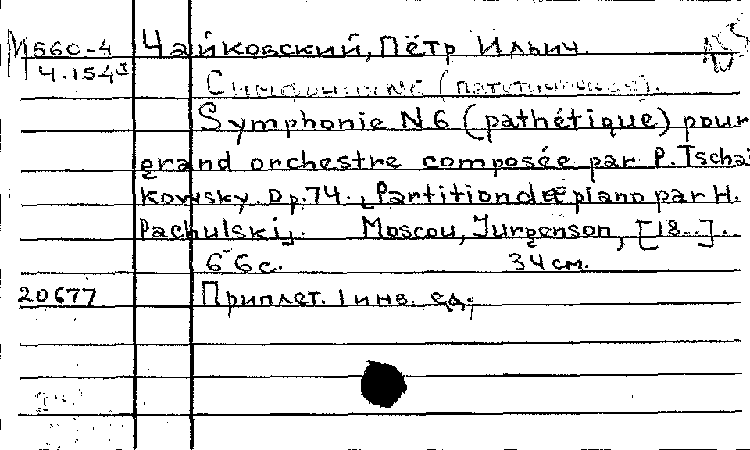 М560-4 Чайковский, Пётр Ильич.
Ч.154³
Симфония №6 (патетическая).
Symphonie N6 (pathétique) pour
grand orchestre composée par P. Tschai
kowsky. Op. 74. [Partition de piano par H.
Pachulski]. Moscou, Jurgenson, [18..].
66 с. 34 см.
20677 Приплет. 1 инв. ед.